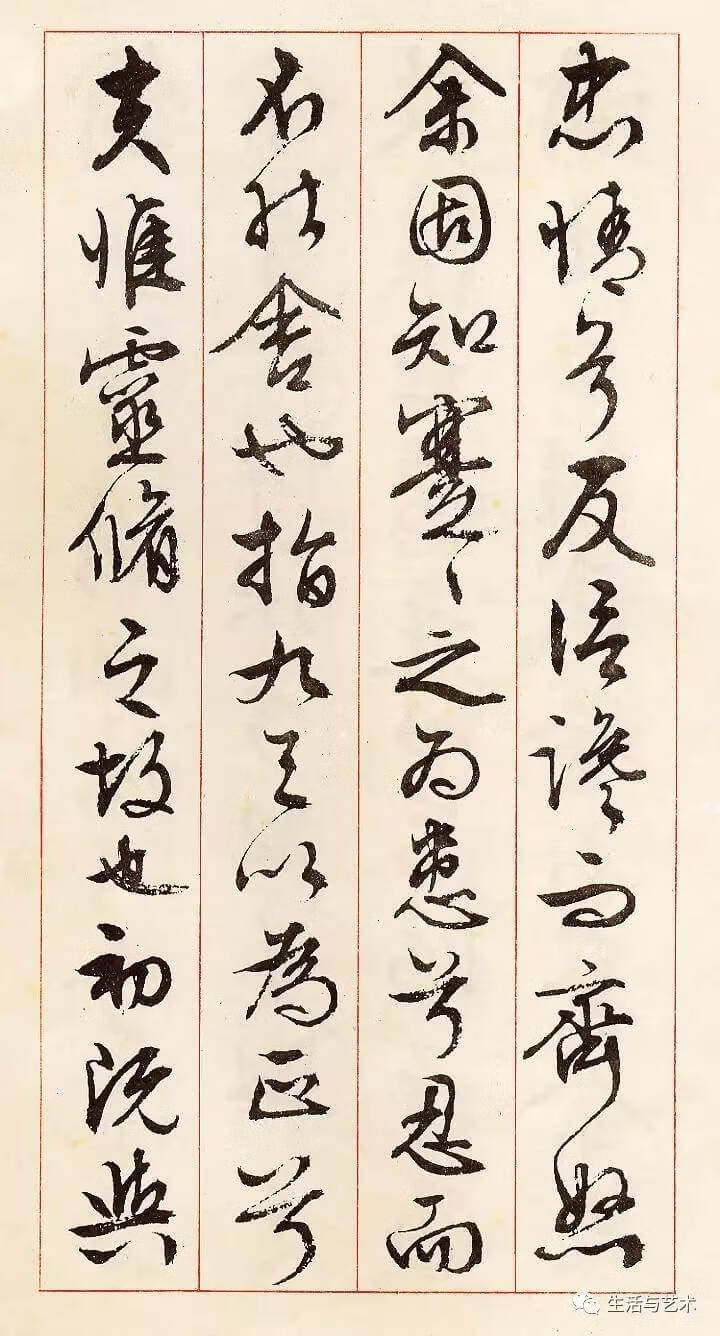 忠情兮反信讒而齊怒
余固知蹇〻之為患兮忍而
不能舍也指九天以為正兮
夫惟靈脩之故也初既與
生活与艺术